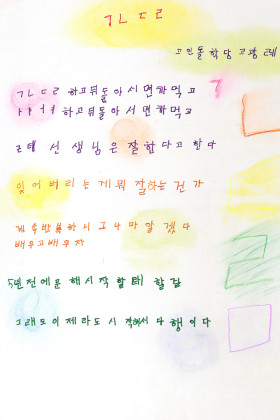 ㄱㄴㄷㄹ
고인돌학당 고광례
ㄱㄴㄷㄹ 하고뒤돌아서면까먹고
ㅏㅑㅓㅕ 하고뒤돌아서면까먹고
선생님은 잘한다고 한다
잊어버리는게뭐 잘하는건가
계속반복하니 그나마알겠다
배우고배우자
5년전에운 해시작할때 할걸
그래도이제라도시작해서다행이다